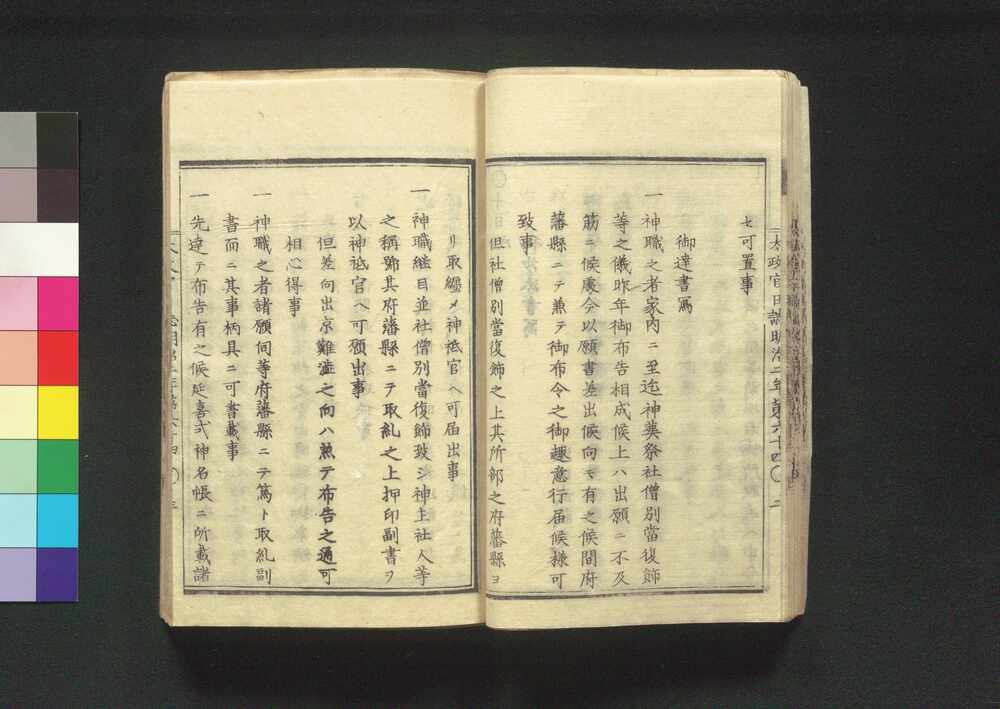 太政官日誌明治二年第六十四〇 二
セ可置事
御達書寫
一 神職之者家內ニ至迄神葬祭社僧別當復飾
等之儀昨年御布告相成候上ハ出願ニ不及
筋ニ候處今以願書差出候向モ有之候間府
藩縣ニテ兼テ御布令之御趣意行届候樣可
致事
但社僧別當復飾之上其所部之府藩縣ヨ
リ取纏メ神祗官ヘ可届出事
一 神職継目並社僧別當復飾致シ神主社人等
之稱號其府藩縣ニテ取糺之上押印副書ヲ
以神祗官ヘ可願出事
但差向出京難澁之向ハ兼テ布告之通可
相心得事
一 神職之者諸願伺等府藩縣ニテ篤ト取糺副
書面ニ其事柄具ニ可書載事
一 先達テ布告有之候延喜式神名帳ニ所載諸